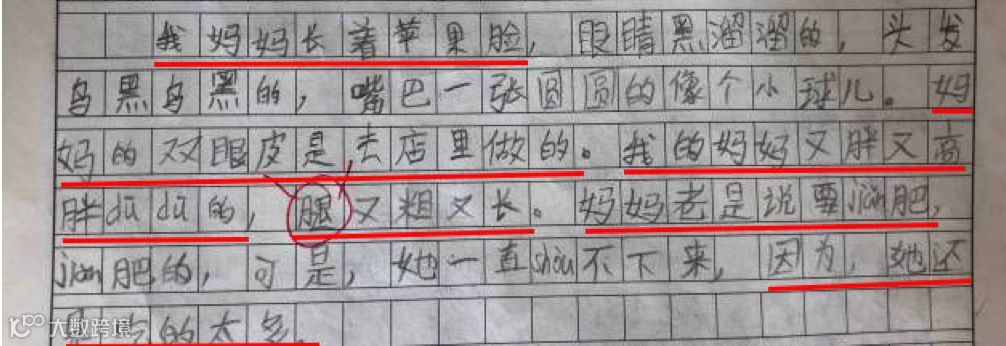 我妈妈长着苹果脸，眼睛黑溜溜的，头发
乌黑乌黑的，嘴巴一张圆圆的像个小球儿。妈
妈的双眼皮是去店里做的。我的妈妈又胖又高
胖dūdū的，腿又粗又长。妈妈老是说要jiǎn肥，
jiǎn肥的，可是，她一直shòu不下来，因为，她还
是吃的太多。
大数跨境